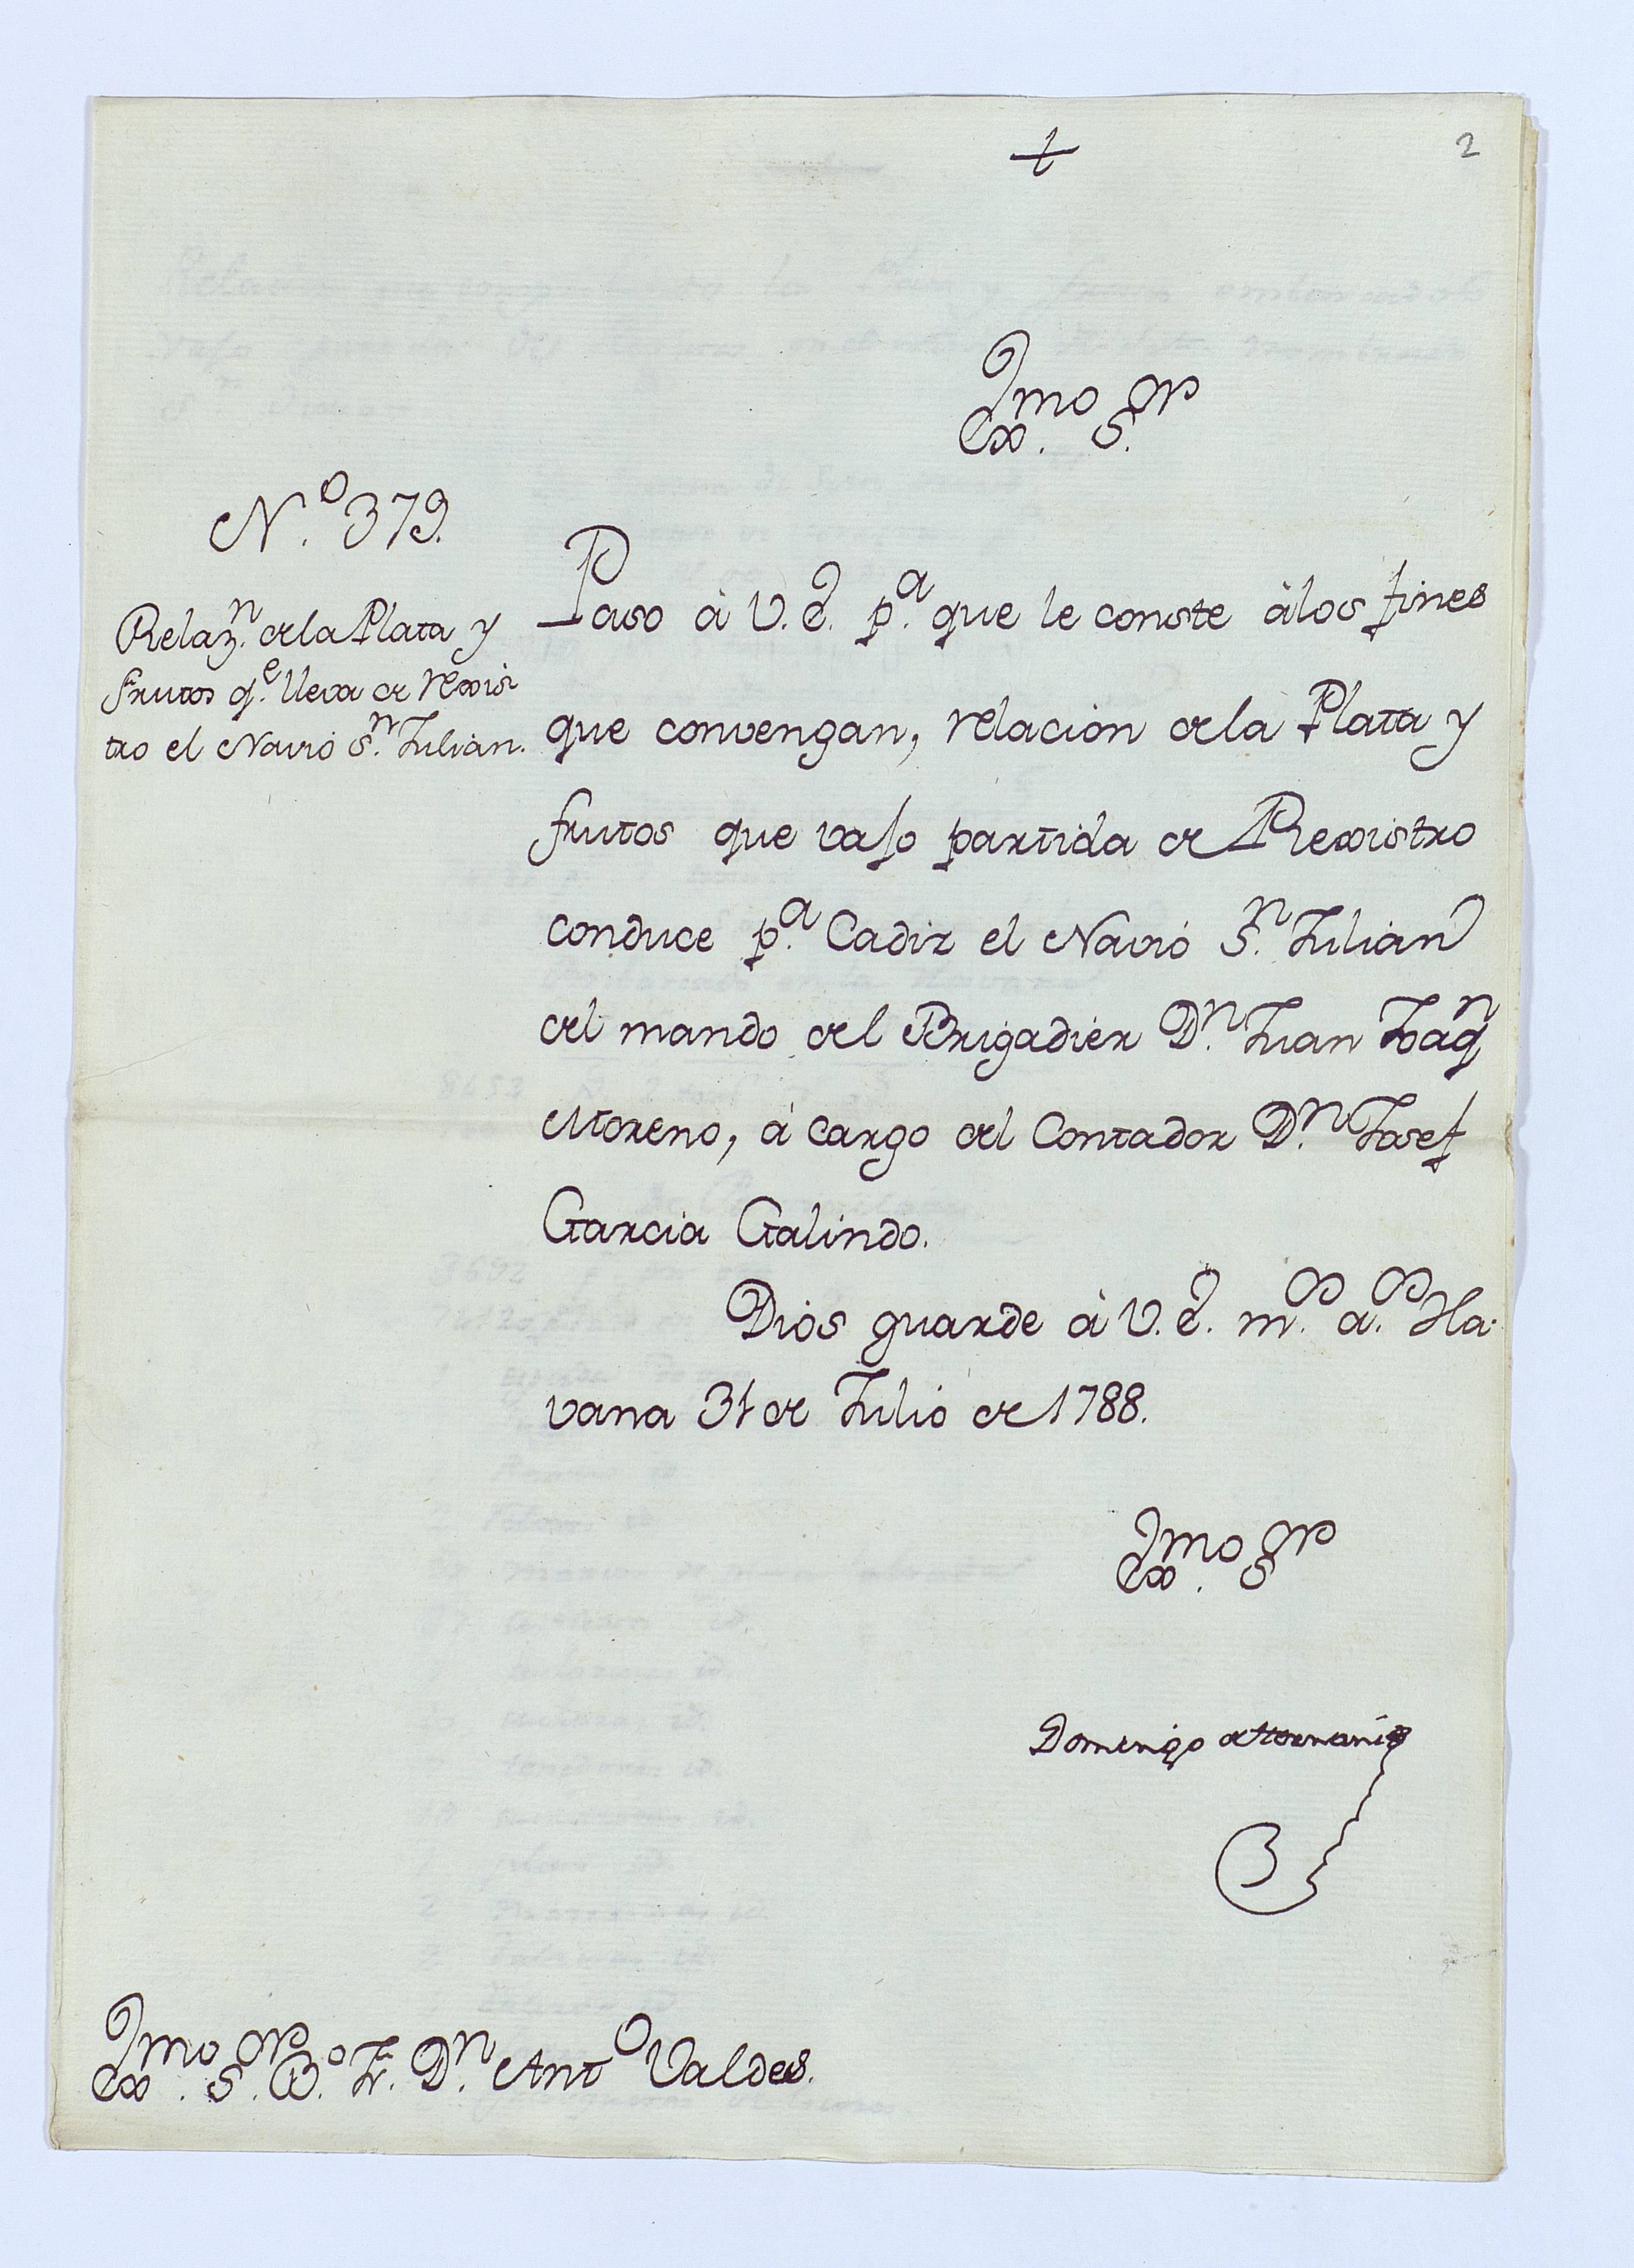 2
Exmo. Sor.
N.o 379.
Relaz.n de la Plata y
frutos q.e lleva de rexis
tro el Navio S.n Julian.
Paso à V.E. p.a que le conste à los fines
que convengan, relacion de la Plata y
frutos que vajo partida de Rexistro
conduce p.a Cadiz el Navio S.n Julian
del mando del Brigadier D.n Juan Joaq.n
Moreno, à cargo del Contador D.n Josef
Garcia Galindo.
Dios guarde à V.E. m.s a.s Ha-
vana 31 de Julio de 1788.
Exmo. Sor.
Domingo de Hernani
Exmo. Sor. B.o Fr. D.n Ant.o Valdes.